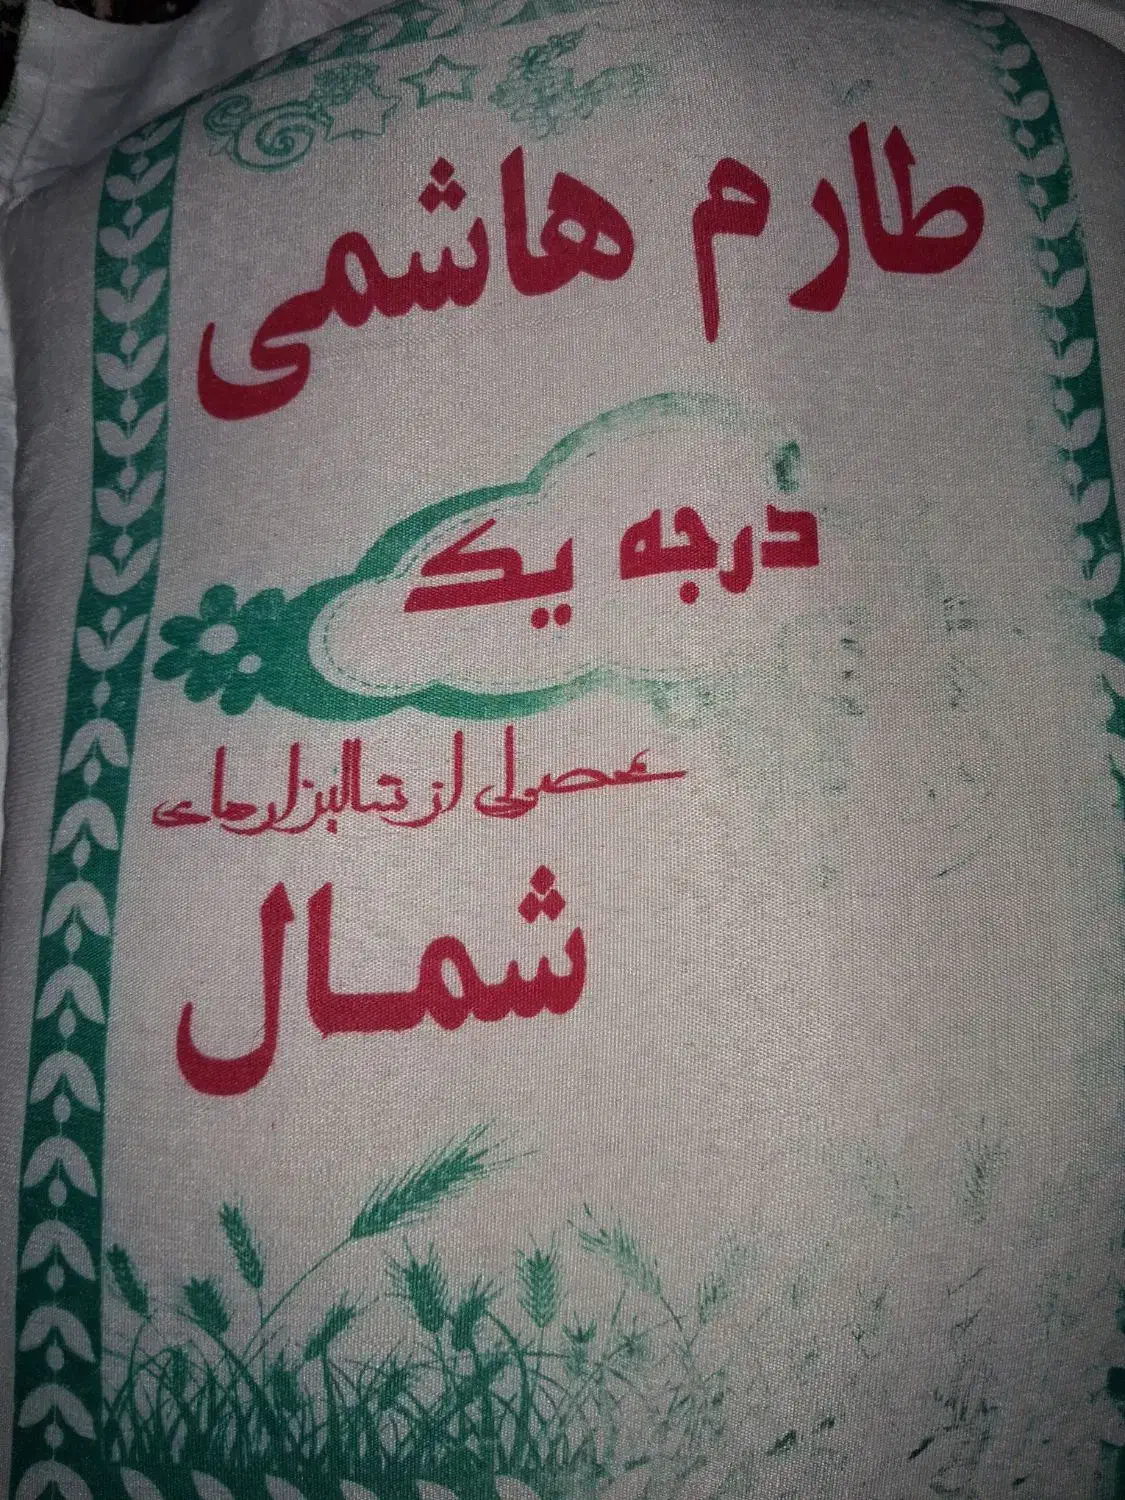 طارم هاشمی
درجه یک
محصولی از شالیزارهای
شمال